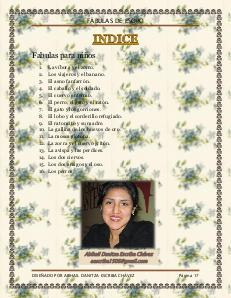 FABULAS DE ESOPO
INDICE
Fabulas para niños
1. La víbora y el zorro.
2. Los viajeros y el banano.
3. El asno fanfarrón.
4. El caballo y el soldado.
5. El cuervo enfermo.
6. El perro, el león y el ratón.
7. El gato y los gorriones.
8. El lobo y el corderillo refugiado.
9. El ratoncito y su madre.
10. La gallina de los huevos de oro.
11. La mosca glotona.
12. La zorra y el cuervo gritón.
13. La avispa y las perdices.
14. Los dos ciervos.
15. Los dos amigos y el oso.
16. Los perros
Abihail Danitza Escriba Chávez
DISEÑADO POR ABIHAIL DANITZA ESCRIBA CHAVEZ Página 17